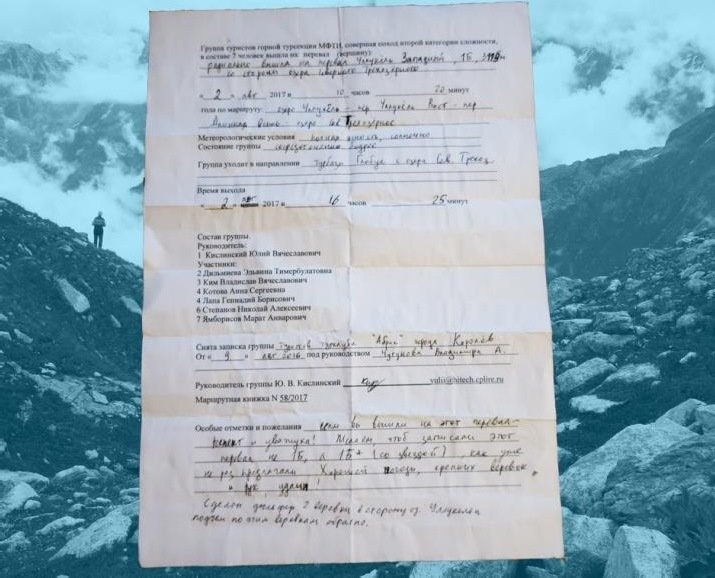 Группа туристов горной турсекции МФТИ, совершая поход второй категории сложности,
в составе 7 человек вышла на перевал (вершину):
радиально вышла на перевал Улукёль Западный, 1Б,
со стороны озера Северного Трехозерного
« 2 » авг 2017 в 10 часов 20 минут
года по маршруту: озеро Улукёль - пер. Улукёль Вост - пер
- озеро Сев Трехозерное
Метеорологические условия солнечно
Состояние группы бодрое
Группа уходит в направлении озера Сев. Трехоз
Время выхода
« 2 » авг 2017 в 16 часов 25 минут
Состав группы.
Руководитель:
1 Кислинский Юлий Вячеславович
Участники:
2 Дильмиева Эльвина Тимербулатовна
3 Ким Владислав Вячеславович
4 Котова Анна Сергеевна
4 Лапа Геннадий Борисович
6 Степанов Николай Алексеевич
7 Ямборисов Марат Анварович
Снята записка группы туристов турклуба "Абрис" города Королёв
От « 9 » авг 2016 под руководством Владимира А.
Руководитель группы Ю. В. Кислинский yulii@hitech.cplire.ru
Маршрутная книжка N 58/2017
Особые отметки и пожелания если вы вышли на этот перевал -
и уважуха! чтоб записали этот
перевал не 1Б, а 1Б* (со звездой), как уже
не раз предлагали Хорошей погоды, крепких верёвок
и рук, удачи!
Сделали 2 верёвки в сторону оз. Улукёль
подъем по этим верёвкам обратно.